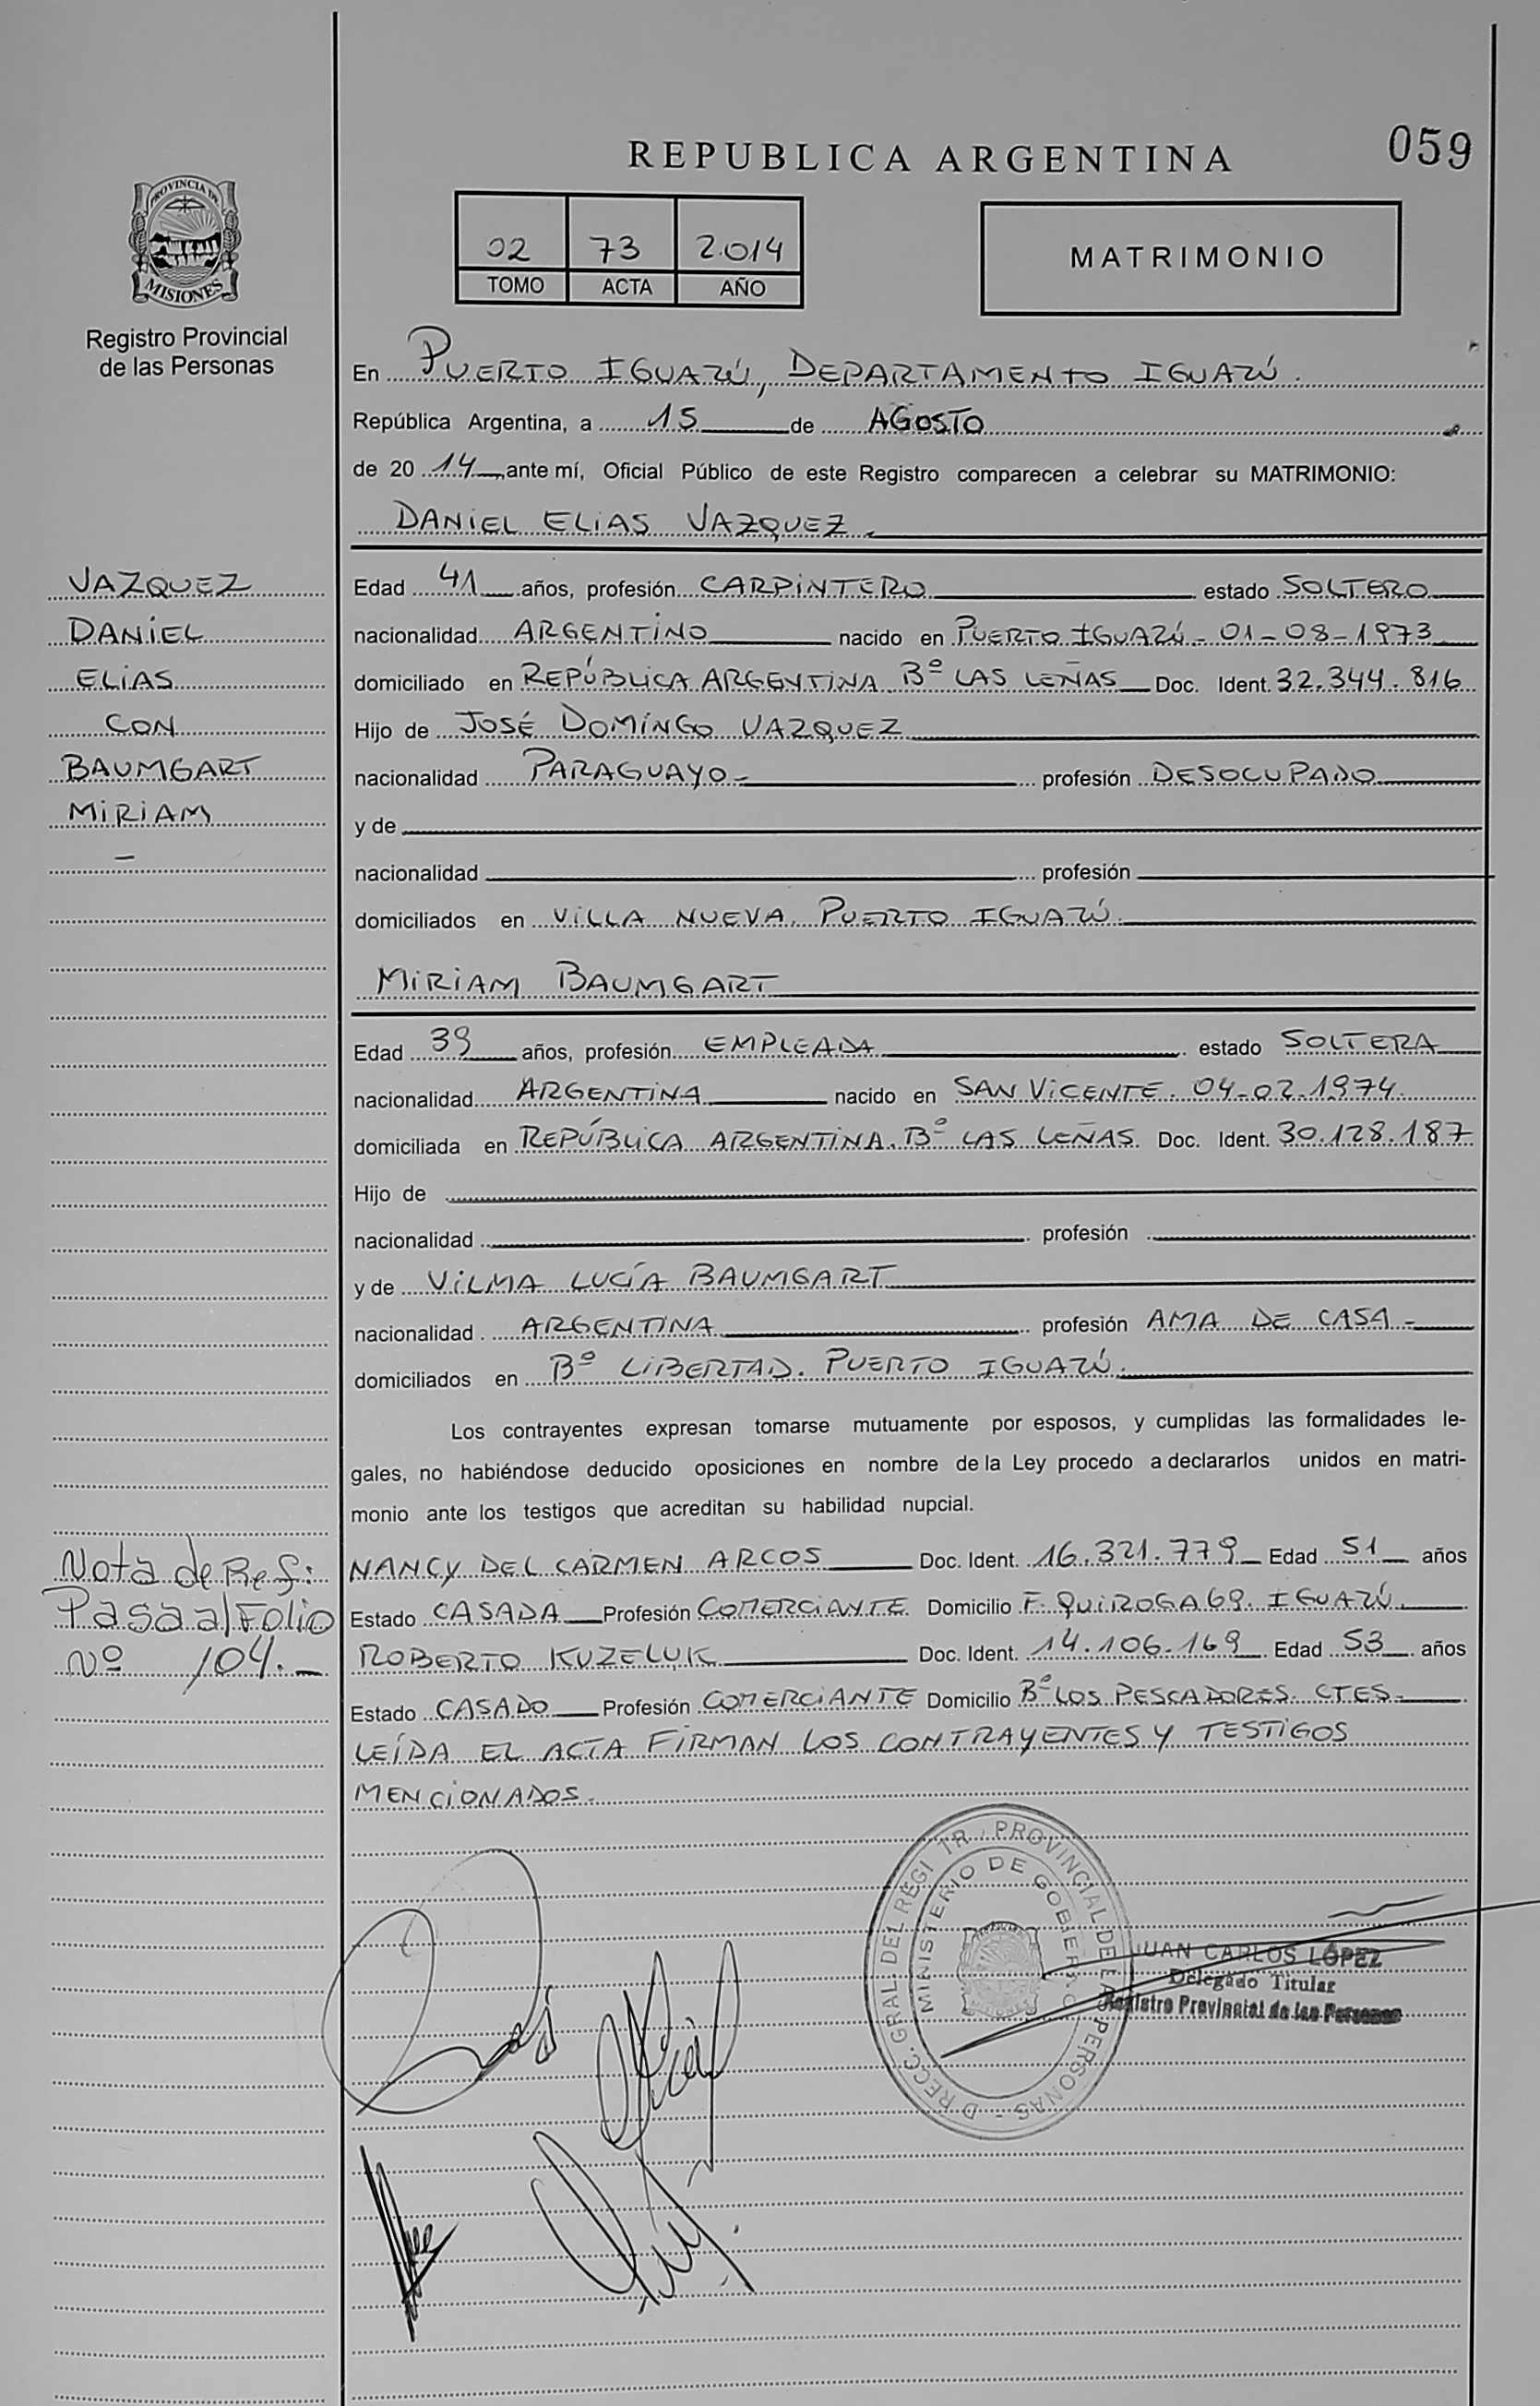 059
REPUBLICA ARGENTINA
PROVINCIA DE
MISIONES
Registro Provincial
de las Personas
02 73 2.014
TOMO ACTA AÑO
MATRIMONIO
En PUERTO IGUAZÚ, DEPARTAMENTO IGUAZÚ.
República Argentina, a 15 de AGOSTO
de 20 14 ante mí, Oficial Público de este Registro comparecen a celebrar su MATRIMONIO:
DANIEL ELIAS VAZQUEZ
VAZQUEZ
DANIEL
ELIAS
CON
BAUMGART
MIRIAM
Edad 41 años, profesión CARPINTERO estado SOLTERO
nacionalidad ARGENTINO nacido en PUERTO IGUAZÚ - 01-08-1973
domiciliado en REPÚBLICA ARGENTINA Bº LAS LEÑAS Doc. Ident. 32.344.816
Hijo de JOSÉ DOMINGO VAZQUEZ
nacionalidad PARAGUAYO- profesión DESOCUPADO
y de
nacionalidad profesión
domiciliados en VILLA NUEVA. PUERTO IGUAZÚ.
MIRIAM BAUMGART
Edad 39 años, profesión EMPLEADA estado SOLTERA
nacionalidad ARGENTINA nacido en SAN VICENTE. 04-02.1974.
domiciliada en REPÚBLICA ARGENTINA. Bº LAS LEÑAS. Doc. Ident. 30.128.187
Hijo de
nacionalidad profesión
y de VILMA LUCÍA BAUMGART
nacionalidad ARGENTINA profesión AMA DE CASA-
domiciliados en Bº LIBERTAD. PUERTO IGUAZÚ.
Los contrayentes expresan tomarse mutuamente por esposos, y cumplidas las formalidades le-
gales, no habiéndose deducido oposiciones en nombre de la Ley procedo a declararlos unidos en matri-
monio ante los testigos que acreditan su habilidad nupcial.
Nota de Ref:
Pasa al Folio
Nº 104.-
NANCY DEL CARMEN ARCOS Doc. Ident. 16.321.779 Edad 51 años
Estado CASADA Profesión COMERCIANTE Domicilio F. QUIROGA 69. IGUAZÚ.
ROBERTO KUZELUK Doc. Ident. 14.106.169 Edad 53 años
Estado CASADO Profesión COMERCIANTE Domicilio Bº LOS PESCADORES. CTES.
LEÍDA EL ACTA FIRMAN LOS CONTRAYENTES Y TESTIGOS
MENCIONADOS.
D RECC. GRAL. DEL REGI TR. PROVINCIAL DE LAS PERSONAS -
MINISTERIO DE GOBIERNO
MISIONES
JUAN CARLOS LÓPEZ
Delegado Titular
Registro Provincial de las Personas